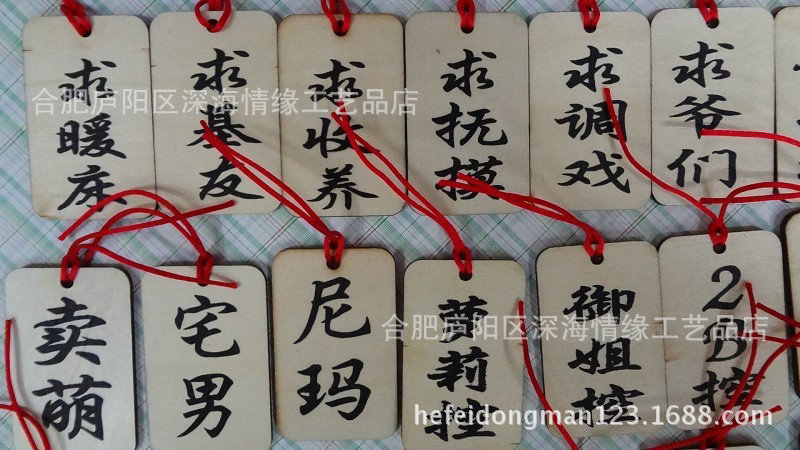 求暖床
求基友
求收养
求抚摸
求调戏
求爷们
合肥庐阳区深海情缘工艺品店
卖萌
宅男
尼玛
萝莉控
御姐控
2B控
合肥庐阳区深海情缘工艺品店
hefeidongman123.1688.com